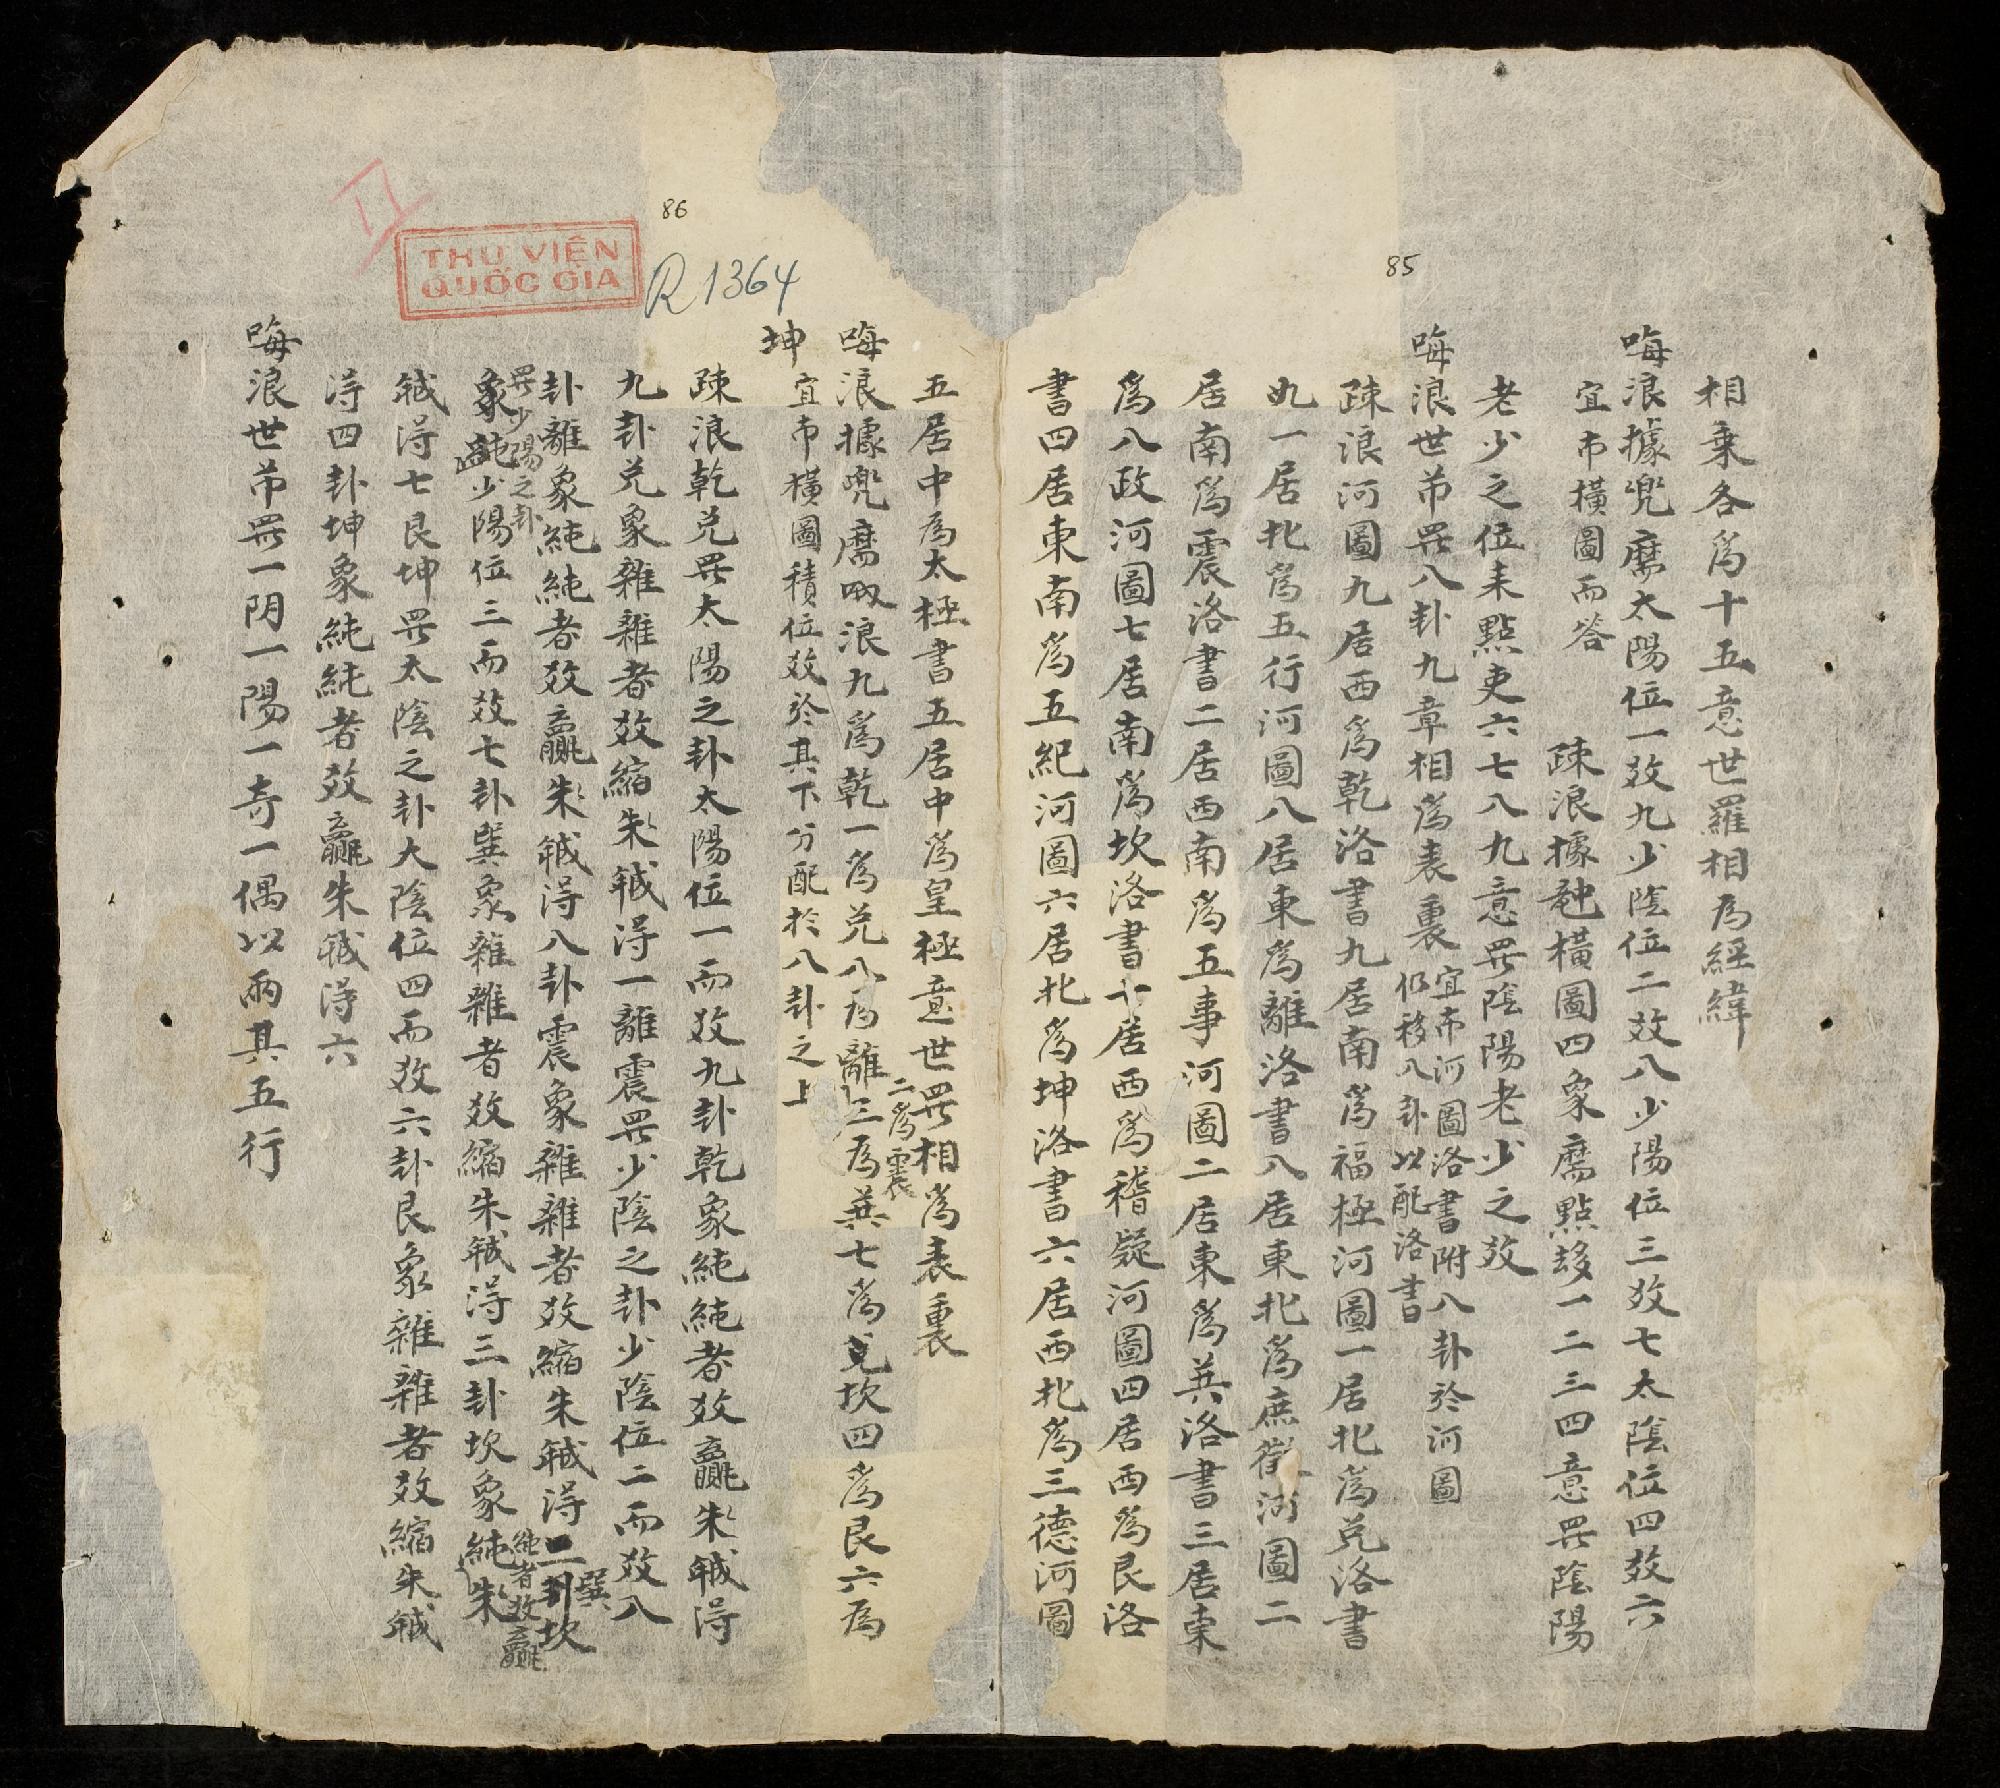 85
相乗各爲十五意世羅相爲經緯
㖼浪據兜麿太陽位一效九少陰位二效八少陽位三效七太陰位四效六
宜帀橫圖而答 疎浪據 橫圖四象麿點 一二三四意畢陰陽
老少之位耒點吏六七八九意畢陰陽老少之效
㖼浪世芇畢八卦九章相爲表裏 宜帀河圖洛書附八卦於河圖
仍移八卦以配洛書
疎浪河圖九居西爲乾洛書九居南爲福極河圖一居北爲兑洛書
一居北爲五行河圖八居東爲離洛書八居東北爲庶徵河圖二
居南爲震洛書二居西南爲五事河圖二居東爲 洛書三居東
爲八政河圖七居南爲坎洛書七居西爲稽疑河圖四居西爲艮洛
書四居東南爲五紀河圖六居北爲坤洛書六居西北爲三德河圖
86
R 1364
THƯ VIỆN
QUỐC GIA
II
五居中爲太極書五居中爲皇極意世畢相爲表裏
㖼浪據兜麿 浪九爲乾一爲兑八爲離三爲 七爲 坎四爲艮六爲
二爲震
坤 宜帀橫圖積位效於其下分配於八卦之上
疎浪乾兑畢太陽之卦太陽位一而效九卦乾象純純者效贏朱 淂
九卦兑象雜雜者效縮朱 淂一離震畢少陰之卦少陰位二而效八
卦離象純純者效贏朱 淂八卦震象雜雜者效縮朱 淂二 坎
巽
畢少陽之卦
象 少陽位三而效七卦巽象雜雜者效縮朱 淂三卦坎象純朱
純者效贏
淂七艮坤畢太陰之卦太陰位四而效六卦艮象雜雜者效縮朱
淂四卦坤象純純者效贏朱 淂六
㖼浪世芇畢一阴一陽一奇一偶以兩其五行